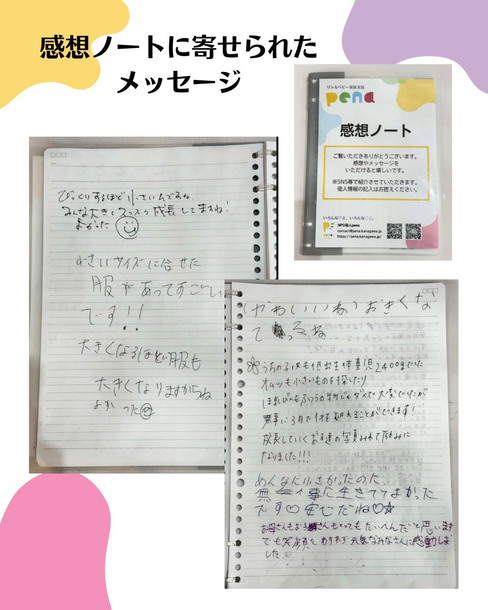 感想ノートに寄せられた
メッセージ
リトルベビー家族支援
pena
感想ノート
ご覧いただきありがとうございます。
感想やメッセージを
いただけると嬉しいです。
※SNS等で紹介させていただきます。
個人情報の記入はお控えください。
NPO法人pena
contact@pena.kanagawa.jp
https://pena.kanagawa.jp/
びっくりするほど小さいんですね
みんな大きくスクスク成長してますね!
よかった
小さいサイズに合せた
服があってすごい
です!!
大きくなるほど服も
大きくなりますからね
よかった
(かわいいね)おきくな
て るね
うちの子供も低出生体重児2400gでした
オムツも小さいものを探したり
無事に3月で1才を迎えることができます!
成長していくお子達の写真みれて励みに
なりました!!!
めんなに小さかったのた
無事に生きててよかった
です♡安心だね♡☆
お母さんもお さんもとってもたいへんだと思います
でも笑顔を わすれず元気なみなさんに感動しま
した